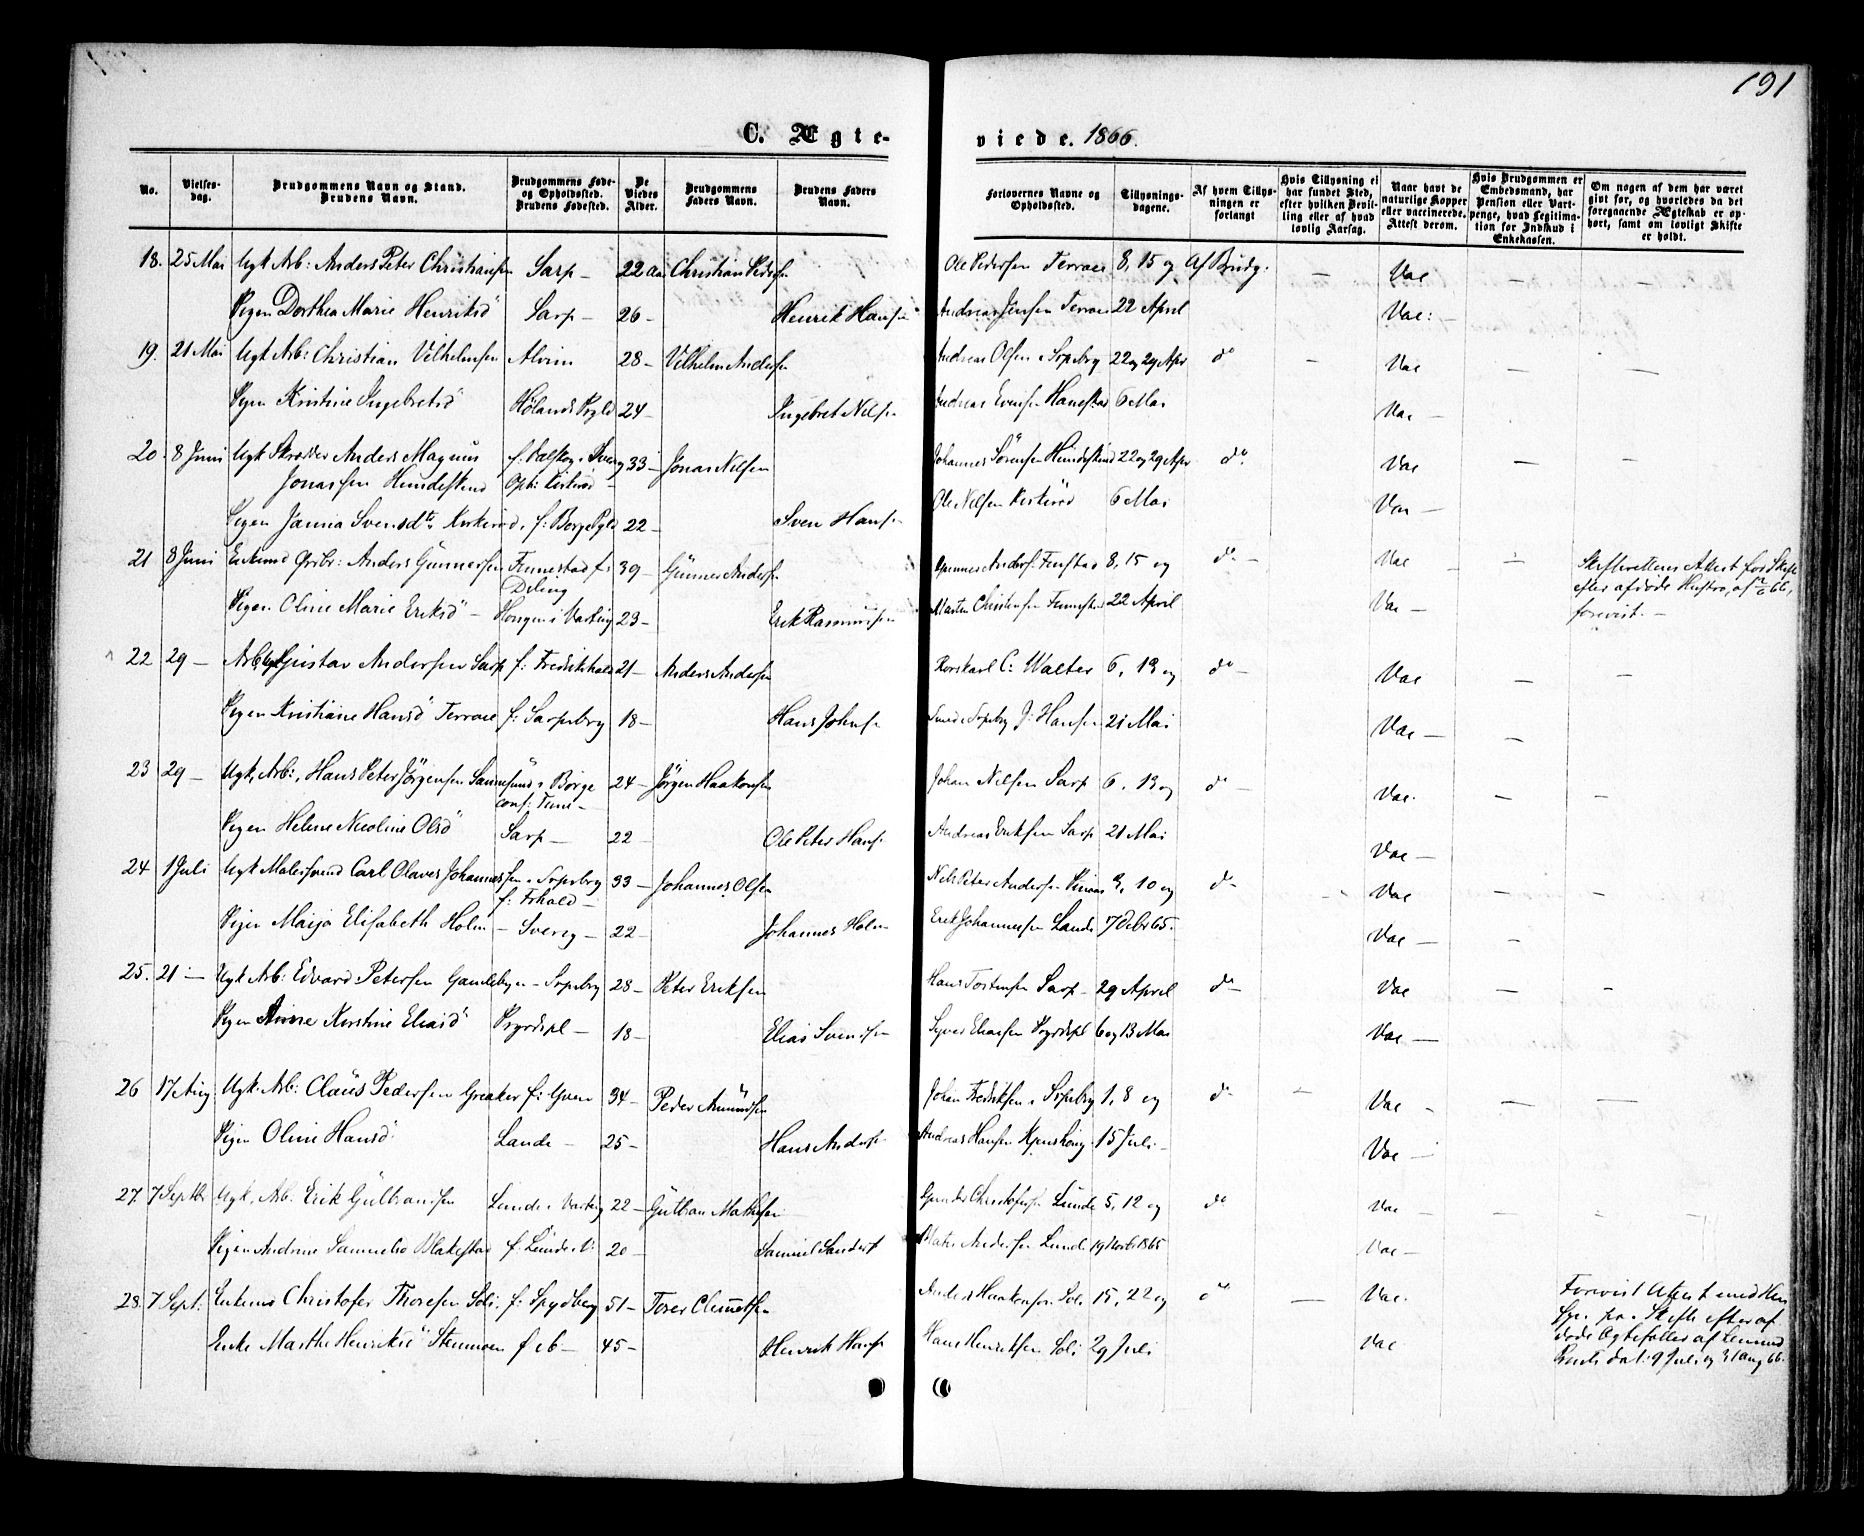 191
C. Ægteviede. 1866.
No. Vielses-dag. Brudgommens Navn og Stand. Brudens Navn. Brudgommens Føde- og Opholdssted. Brudens Fødested. De Viedes Alder. Brudgommens Faders Navn. Brudens Faders Navn. Forlovernes Navne og Opholdssted. Tillysnings-dagene. Af hvem Tillysningen er forlangt Hvis Tillysning ei har fundet Sted, efter hvilken Bevilling eller af hvad lovlig Aarsag. Naar havt de naturlige Kopper eller vaccinerede. Attest derom. Hvis Brudgommen er Embedsmand, har Pension eller Vartpenge, hvad Legitimation for Indskud i Enkekassen. Om nogen af dem har været givt før, og hvorledes da det foregaaende Ægteskab er ophørt, samt om lovligt Skifte er holdt.
18. 25 Mai Ugk Arb: Anders Peter Christiansen Sarp – 22 Aar Christian Peders. Ole Pedersen Terrass 8, 15 og Af Brudg. – Vac – –
Pigen Dorthea Marie Henriksd Sarp – 26 – Henrik Hansen Andreas Jensen Terras 22 April Vac: –
19. 21 Mai Ugk Arb: Christian Vilhelmsen Alvim 28 – Vilhelm Anders. Andreas Olsen Srpsbrg 22 og 29 Apr do – Vac – –
Pigen Kristine Ingebretsd Hølands Prgld 24 – Ingebret Nils. Andreas Evensen Hanestad 6 Mai Vac –
20. 8 Juni Ugk Skrædder Anders Magnus f. Dalskog i Sverg 33 – Jonas Nilsen Johannes Sörensen Hundeskind 22 og 29 Apr do. Vac – –
Jonassen Hundeskind Oph: Kirkeröd –
Pigen Janna Svensdtr Kirkeröd, f: Borge Prgld 22 – Sven Hans. Ole Nilsen Kirkeröd 6 Mai Vac –
21 8 Juni Enkemd Grbr: Anders Gunnersen Finnestad f: 39 – Gunner Anders. Gunner Anders. Finstad 8, 15 og do – Vac – – Skifterettens Attest for Skifte
Deling efter afdøde Hustro, af
Pigen Oline Marie Eriksd – Haugen i Varteig 23 – Erik Rasmussen Martin Christensen Finnestad 22 April Vac – forevist. –
22 29 – Arb. Ugk Gustav Andersen Sarp f: Fredrikshald 21 – Anders Andersen Korskarl C: Walter 6, 13 og do – Vac – –
Pigen Kristiane Hansd Terrace f: Sarpsborg 18 – Hans Johns. Smed i Srpsbrg J: Hansen 21 Mai Vac – –
23 29 – Ugk, Arb:, Hans Peter Jörgensen Sannesund i Borge 24 – Jörgen Haakonsen Johan Nilsen Sarp 6, 13 og do – Vac. – –
conf: Tune –
Pigen Helene Nicoline Olsd Sarp – 22 – Ole Peter Hans. Andreas Eriksen Sarp 21 Mai Vac –
24 1 Juli Ugk Malersvend Carl Olaves Johannessen i Srpsbrg 33 – Johannes Olsen Nils Peter Andersen 3, 10 og do – Vac – –
f: Frhald –
Pigen Maija Elisabeth Holm – Sverig – 22 – Johannes Holm Erik Johannessen Lande 7 Debr 65. Vac – –
25. 21 – Ugk Arb: Edvard Petersen Gamlebyen – Srpsbrg 28 – Peter Eriksen Hans Torstensen Sarp – 29 April do – Vac – –
Pigen Anne Kirstine Eliasd Prgrdspl – 18 – Elias Svendsen Syver Eliassen Prgrdspl 6 og 13 Mai Vac –
26 17 Aug Ugk. Arb: Claus Pedersen Greaker f: Gven 34 – Peder Amundsen Johan Fredriksen i Srpsbrg 1, 8 og do – Vac – – –
Pigen Oline Hansd. Lande – 25 – Hans Anders. Andreas Hansen 15 Juli – Vac –
27. 7 Septbr Ugk. Arb. Erik Gulbransen Lunde i Varteig 22 – Gulbran Mathisen Gunder Christofersen Lunde 5, 12 og do Vac – – –
Pigen Andrine Samuelsd Blakestad f: Lunde V: 20 – Samuel Sanders. Andersen Lunde 19 Novbr 1865 Vac –
28. 7 Sept: Enkemd Christofer Thoresen Soli, f: Spydberg 51 – Torer Clemetsen Anders Haakonsen Soli 15, 22 og do – Vac. Forevist Attest med Hen
syn paa Skifte efter af-
Enke Marthe Henriksd Stenmoen f eb – 45 – Henrik Hans. Hans Henriksen Soli 29 Juli Vac døde Ægtefæller af Lensmd
dat: 9 Juli og 31 Aug 66.